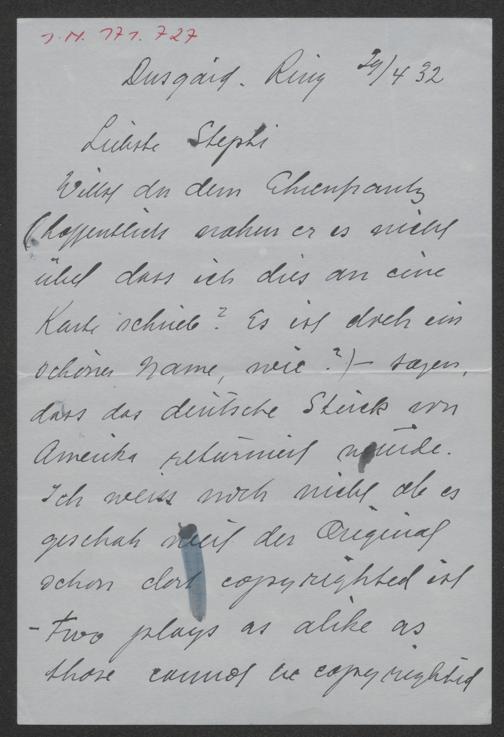 I.N. 171.727
Dusgård. Ring 29/4 32
Liebste Stephi
Willst du dem Ehrenfrantz
(hoffentlich nahm er es nicht
übel dass ich dies an eine
Karte schrieb? Es ist doch ein
schöner Name, wie?) – sagen,
dass das deutsche Stück von
Amerika returniert wurde.
Ich weiss noch nicht ob es
geschah weil der Original
schon dort copyrighted ist
– Two plays as alike as
those cannot be copyrighted